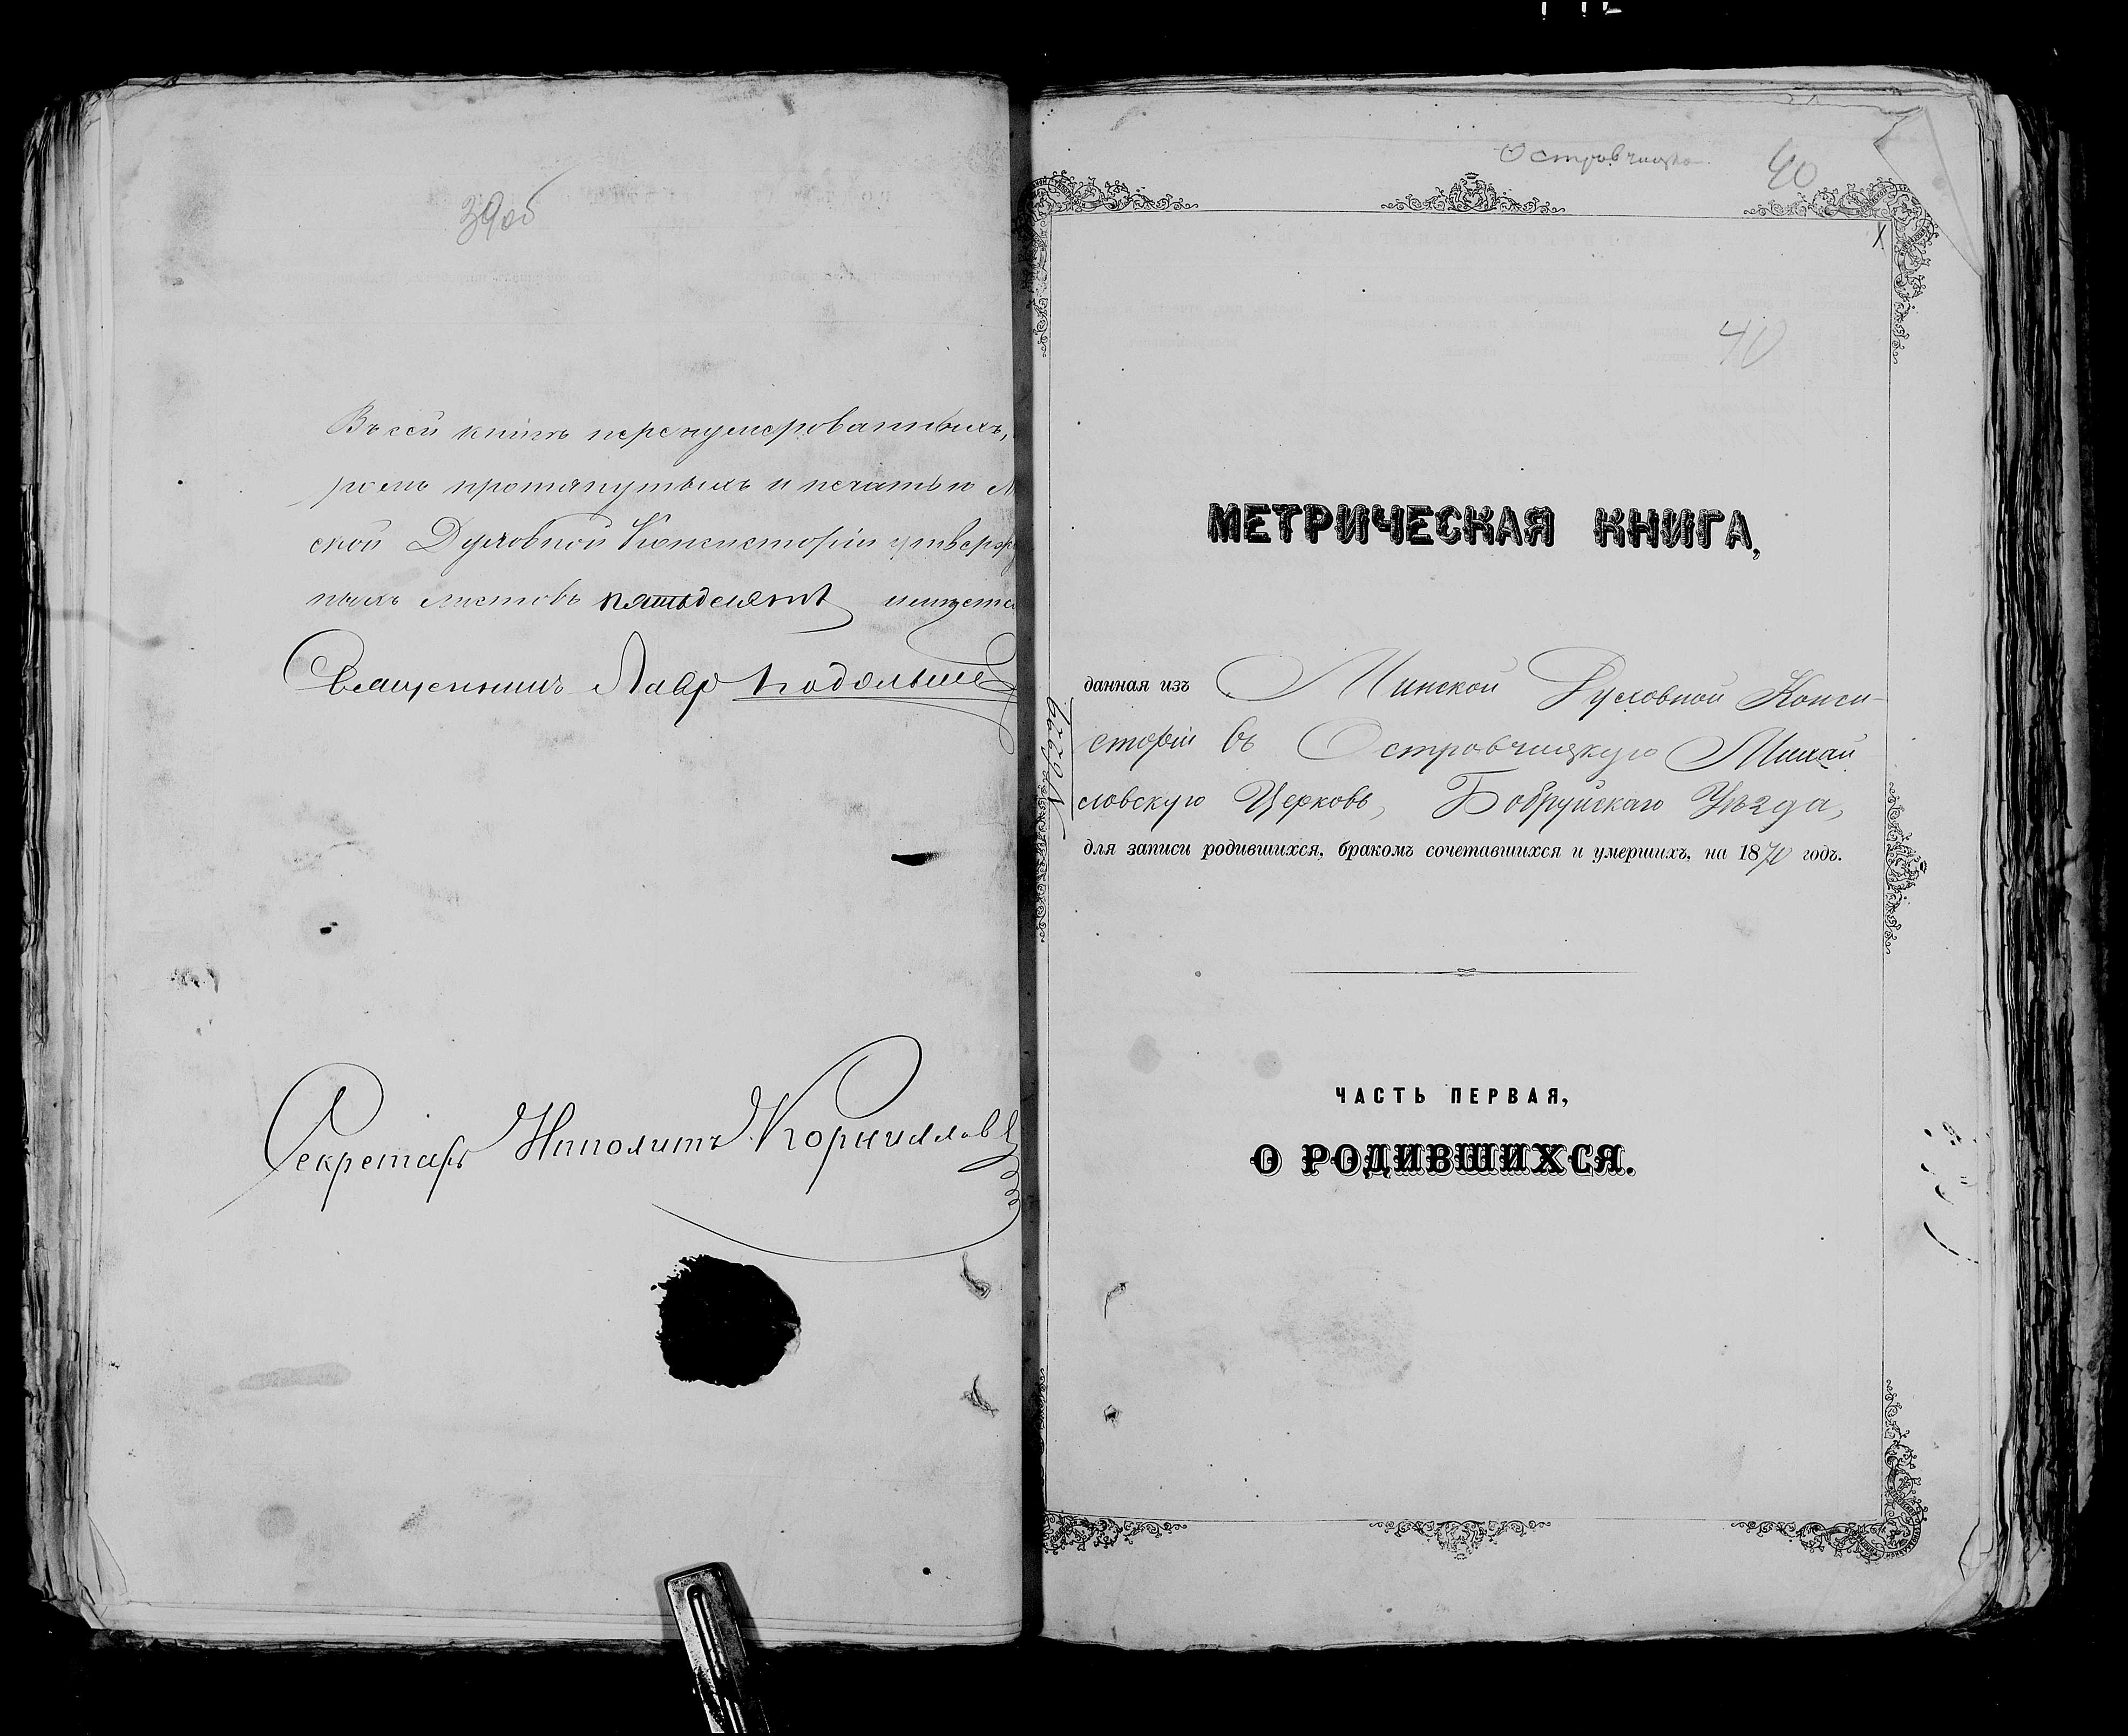 39об
Въ сей книгѣ перенумерованныхъ,
протянутыхъ и печатью
ской Духовной Консисторіи утверж
ныхъ листовъ пятьдесятъ
Священникъ Лавр
Секретарь Иполитъ Корниллов
Островчицко
40
40
МЕТРИЧЕСКАЯ КНИГА,
данная изъ Минской Духовной Конси-
сторіи въ Островчицкую Михай
ловскую Церковь, Бобруйскаго Уѣзда,
для записи родившихся, бракомъ сочетавшихся и умершихъ, на 1870 годъ.
ЧАСТЬ ПЕРВАЯ,
О РОДИВШИХСЯ.